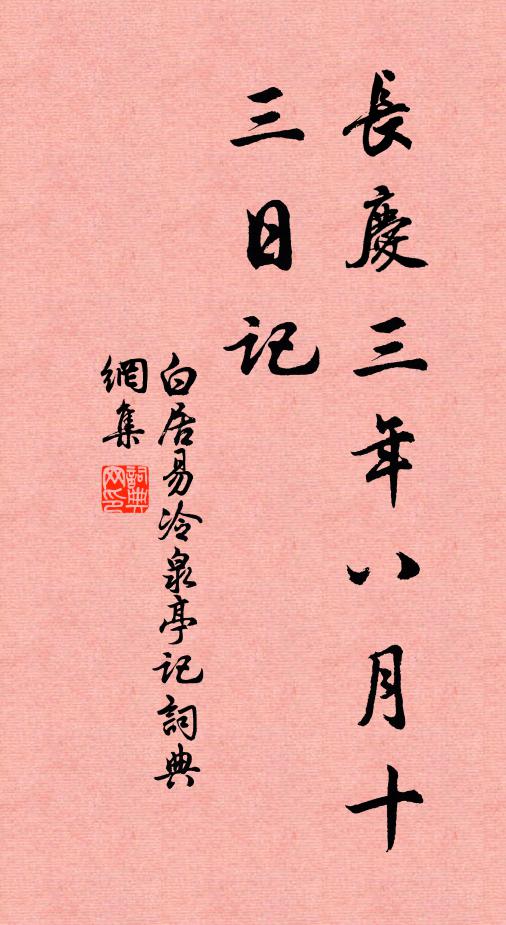 長慶三年八月十
三日記
白居易冷泉亭記詞典
網集
詞典
网印